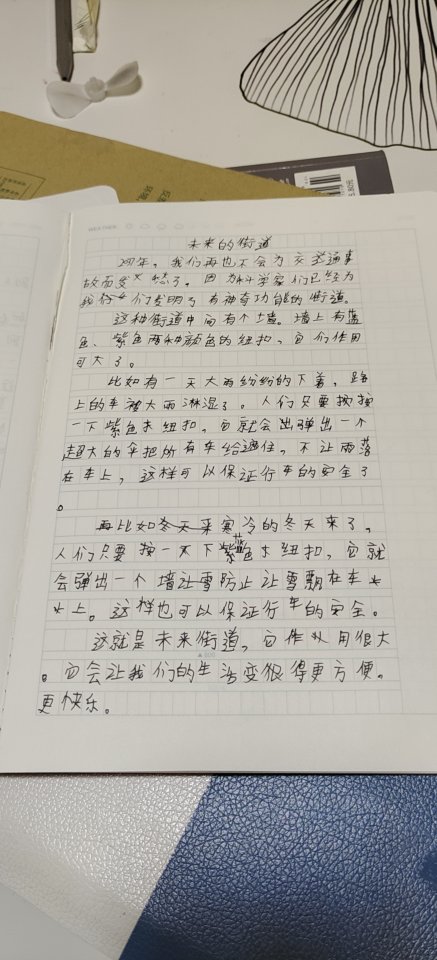 未来的街道
20年，我们再也不会为交通事
故而发愁了。因为科学家们已经为
我们发明了有神奇功能的街道。
这种街道中间有个墙。墙上有蓝
色、紫色两种颜色的纽扣，它们作用
可大了。
比如有一天大雨纷纷的下着，路
上的车被大雨淋湿了。人们只要按按
一下紫色纽扣，它就会出弹出一个
超大的伞把所有车给遮住，不让雨落
在车上，这样可以保证行车的安全了
。
再比如寒冷的冬天来了，
人们只要按一下蓝色纽扣，它就
会弹出一个墙让雪防止让雪飘在车
上。这样也可以保证行车的安全。
这就是未来街道，它作从用很大
。它会让我们的生活变很得更方便。
更快乐。